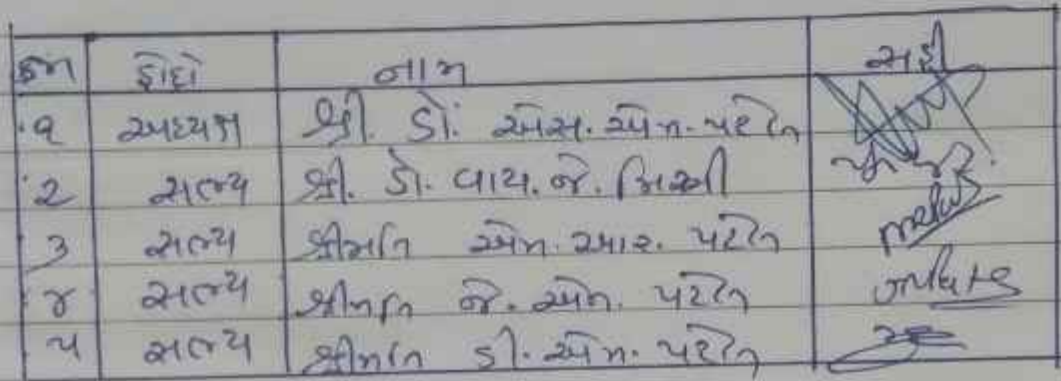 ક્રમ હોદ્દો નામ સહી
૧ અધ્યક્ષ શ્રી. ડૉ. એસ. એન. પટેલ
૨ સભ્ય શ્રી. ડૉ. વાય. જે. મિસ્ત્રી
૩ સભ્ય શ્રીમતિ એન. આર. પટેલ
૪ સભ્ય શ્રીમતિ જે. એન. પટેલ
૫ સભ્ય શ્રીમતિ ડી. એન. પટેલ